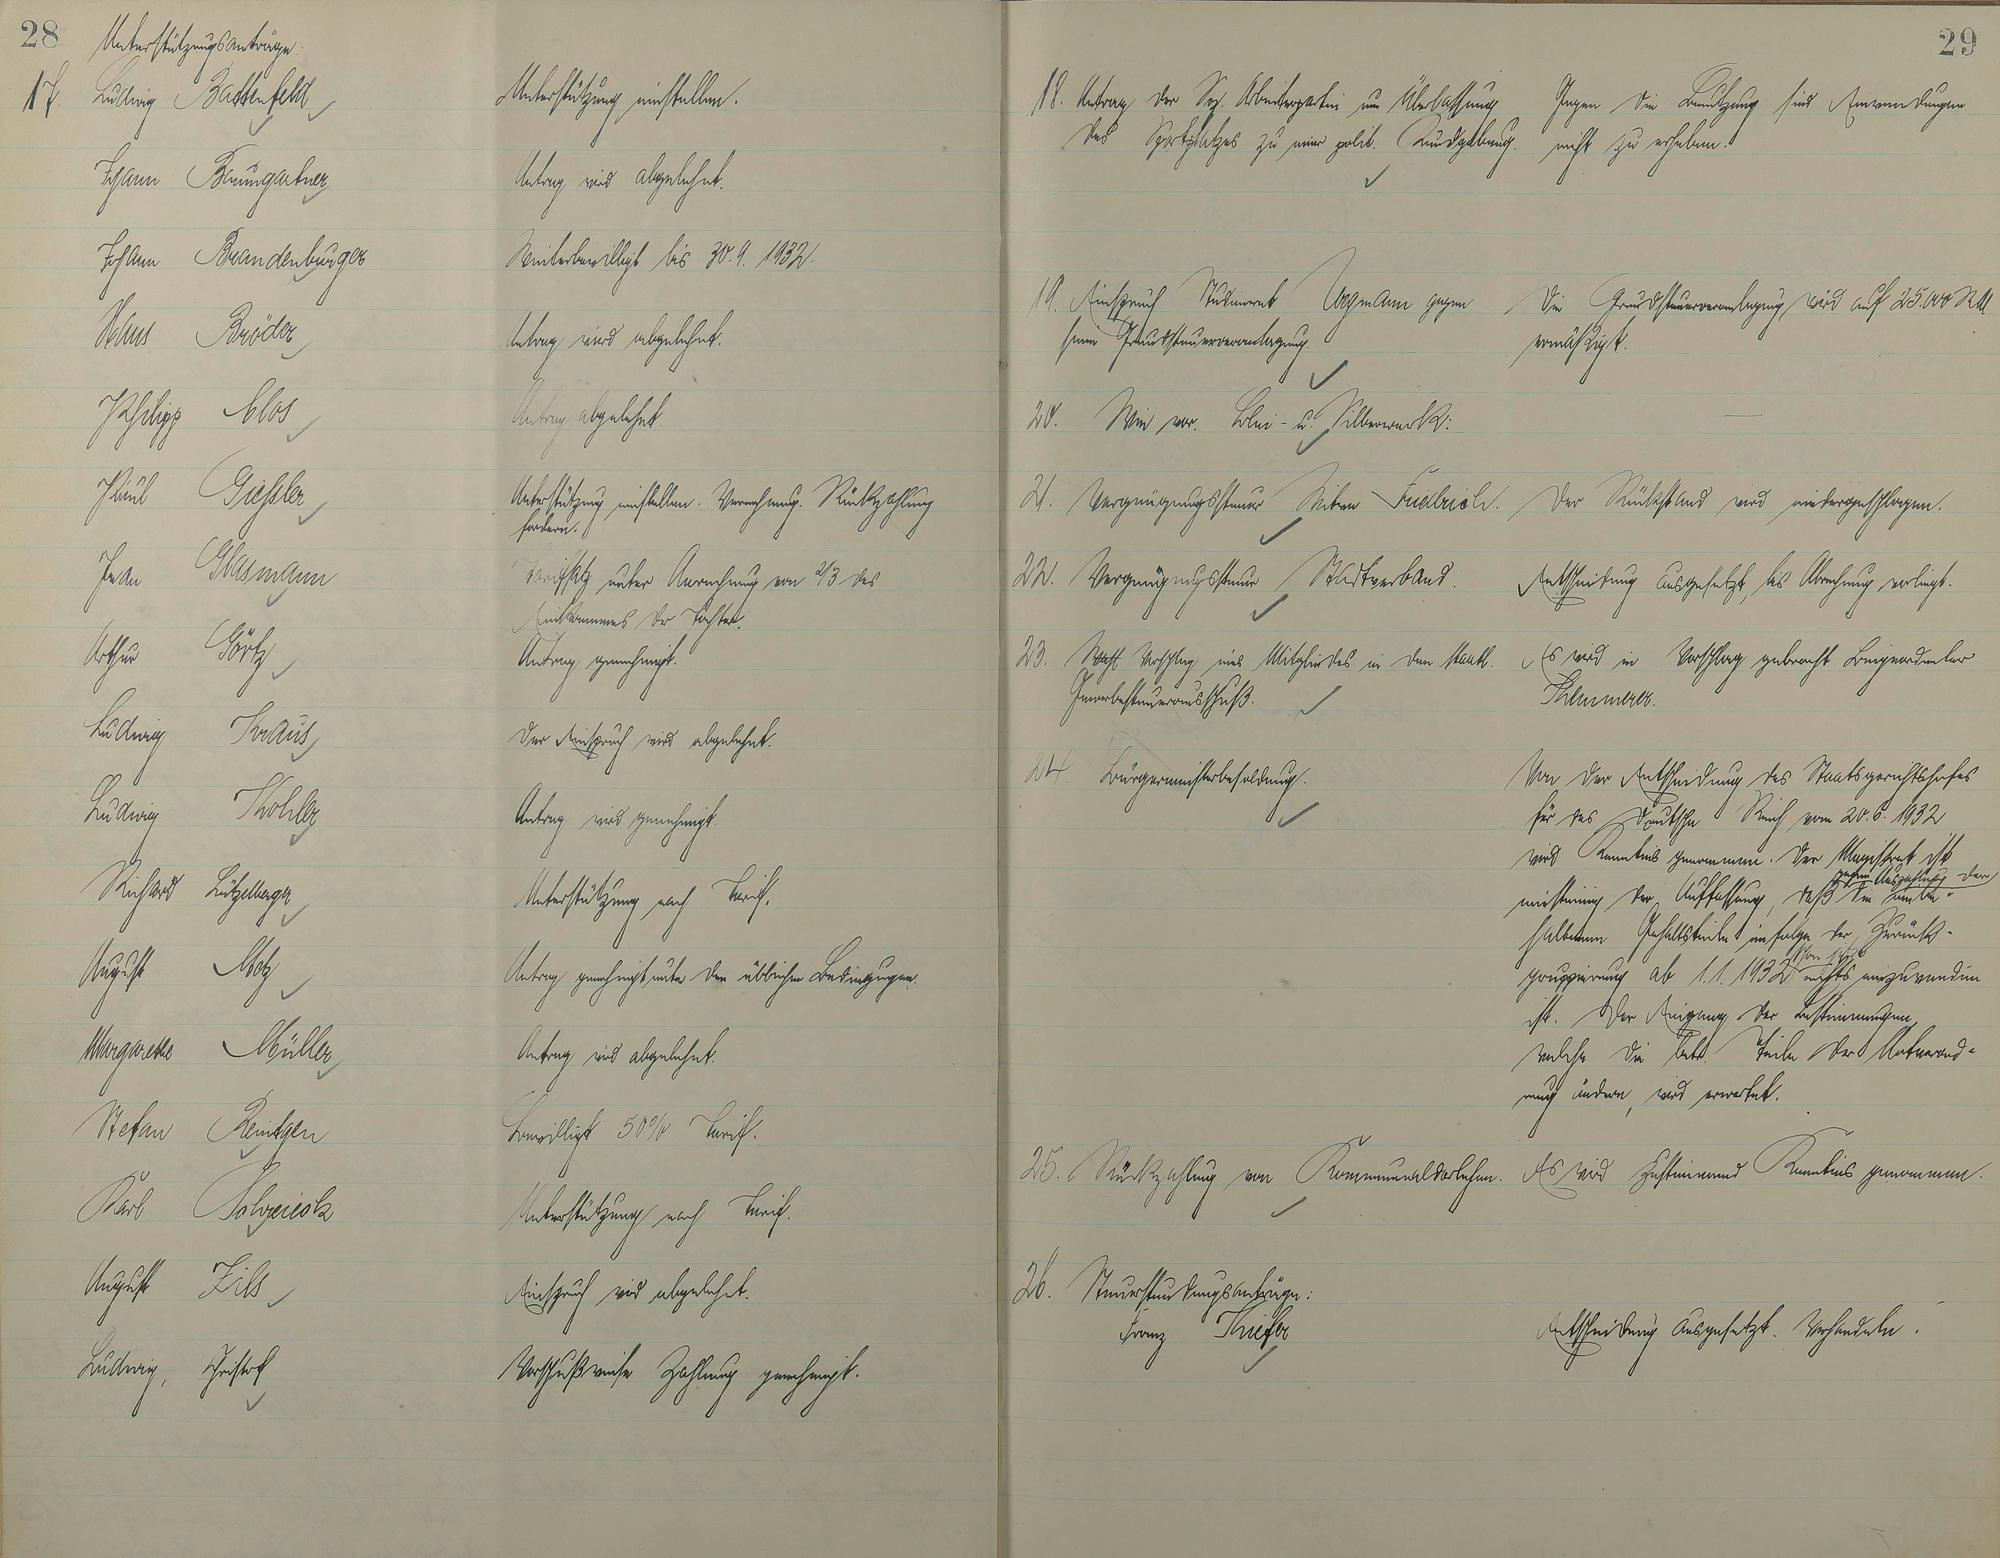 28
Unterstützungsanträge.
17. Ludwig Battenfeld Unterstützung einstellen.
Johann Baumgartner Antrag wird abgelehnt.
Johann Brandenburger Weiterbewilligt bis 30.9.1932.
Hans Bröder Antrag wird abgelehnt.
Philipp Clos Antrag abgelehnt.
Paul Giessler Unterstützung einstellen. Vernehmung. Rückzahlung
fordern.
Jean Glasmann Tarifsatz unter Anrechnung von 2/3 des
Einkommens der Tochter.
Arthur Görtz Antrag genehmigt.
Ludwig Kraus Der Einspruch wird abgelehnt.
Ludwig Kohler Antrag wird genehmigt.
Richard Lützelberger Unterstützung nach Tarif.
August Motz Antrag genehmigt unter den üblichen Bedingungen.
Margarethe Müller Antrag wird abgelehnt.
Stefan Reintgen Bewilligt 50% Tarif.
Karl Unterstützung nach Tarif.
August Zils Einspruch wird abgelehnt.
Ludwig, Christof Vorschußweise Zahlung genehmigt.
29
18. Antrag der Soz. Arbeiterpartei um Überlassung Gegen die Benutzung sind Einwendungen
des Sportplatzes zu einer polit. Kundgebung. nicht zu erheben.
19. Einspruch Studienrat gegen Die Grundsteuerveranlagung wird auf 25.000 RM
seine Grundsteuerveranlagung. ermäßigt.
20. Wie vor. Blei- u. Silberwerk:
21. Vergnügungssteuer Witwe Friedrich. Der Rückstand wird niedergeschlagen.
22. Vergnügungssteuer Stadtverband. Entscheidung ausgesetzt, bis Abrechnung vorliegt.
23. Wahl Vorschlag eines Mitgliedes in den staatl. Es wird in Vorschlag gebracht Beigeordneter
Gewerbesteuerausschuß. Kemmerer.
24. Bürgermeisterbesoldung. Von der Entscheidung des Staatsgerichtshofes
für das Deutsche Reich vom 20.6.1932
wird Kenntnis genommen. Der Magistrat ist
gegen Auszahlung der
einstimmig der Auffassung, daß die einbe-
haltenen Gehaltsteile infolge der Zurück-
gruppierung ab 1.1.1932 nichts einzuwenden
ist. Der Eingang der Bestimmungen,
welche die betr. Teile der Notverord-
nung ändern, wird erwartet.
25. Rückzahlung von Kommunaldarlehen. Es wird zustimmend Kenntnis genommen.
26. Steuerstundungsanträge:
Franz Kiefer Entscheidung ausgesetzt. Verhandeln.